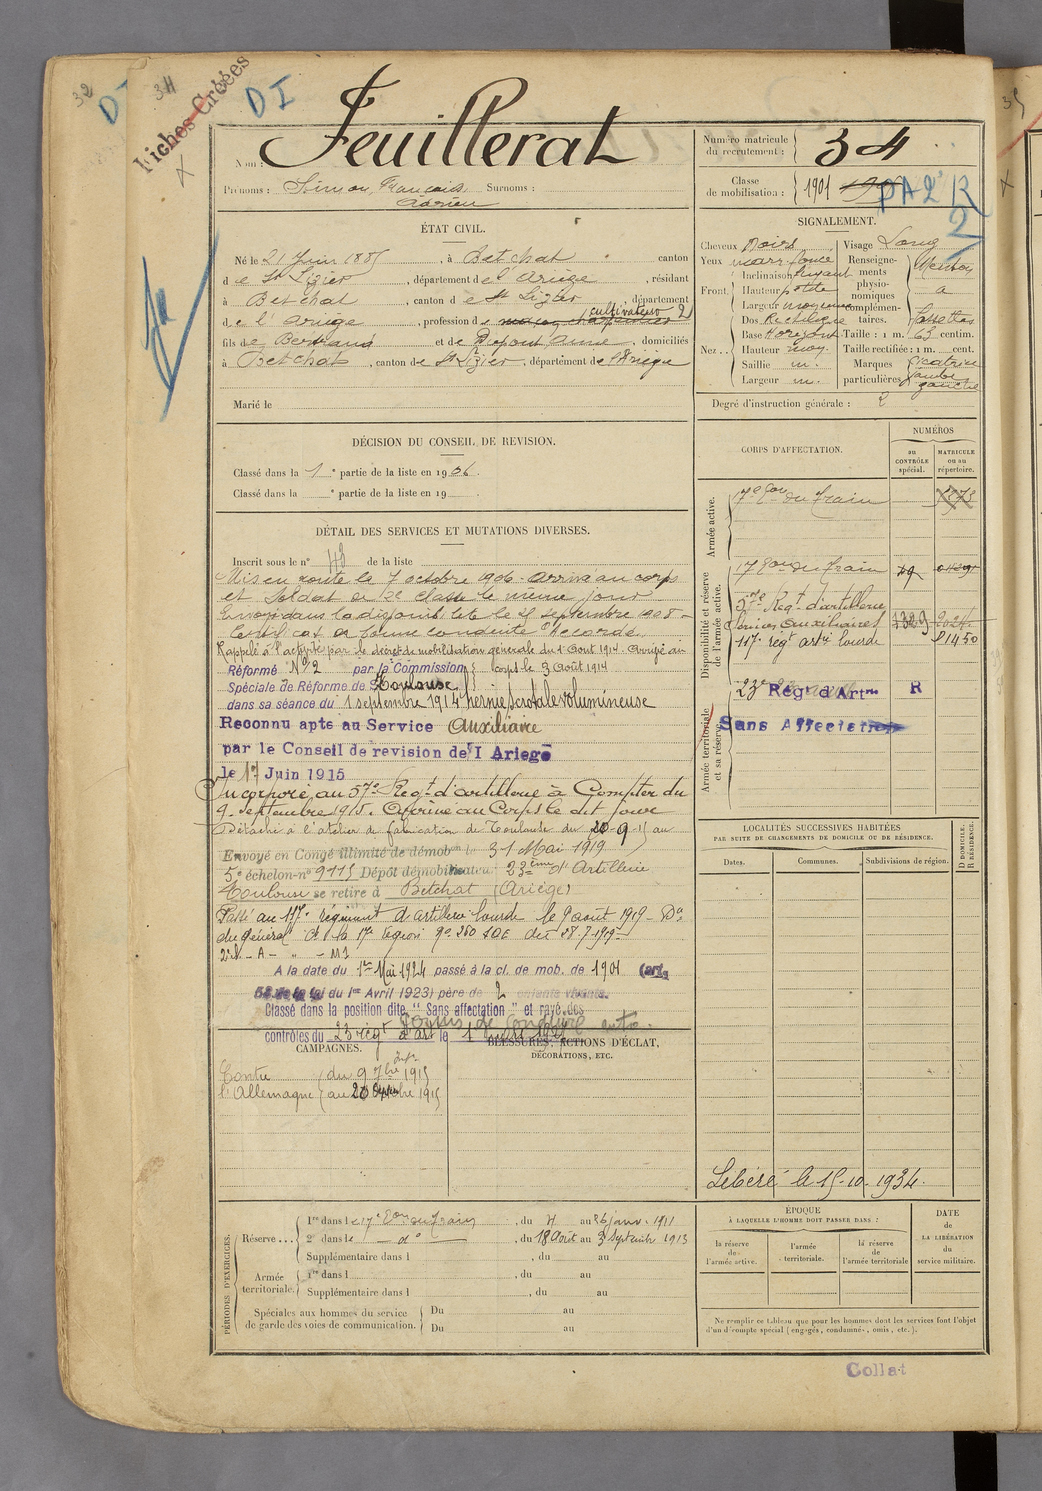 32
34
Fiches Créées
D I
D I
Nom : Feuillerat
Prénoms : Simon François Surnoms :
Adrien
Numéro matricule
du recrutement : 34
Classe
de mobilisation : 1901
ÉTAT CIVIL.
Né le 21 Juin 1885, à Betchat canton
de St Lizier, département de l'Ariège, résidant
à Betchat, canton de St Lizier, département
cultivateur 2
de l'Ariège, profession de maçon charpentier
fils de Bertrand et de Dupont Anne, domiciliés
à Betchat, canton de St Lizier, département de l'Ariège
Marié le
SIGNALEMENT.
Cheveux Noirs Visage Long
Yeux marr foncé
Front. Inclinaison fuyant
Hauteur petite
Largeur moyenne
Nez.. Dos Rectiligne
Base Horizont
Hauteur moy.
Saillie m.
Largeur m.
Renseignements
physionomiques
complémentaires.
Menton
à
fossettes
Taille : 1 m. 63 centim.
Taille rectifiée : 1 m. cent.
Marques
particulières
cicatrice
jambe
gauche
Degré d'instruction générale : 2
DÉCISION DU CONSEIL DE REVISION.
Classé dans la 1e partie de la liste en 1906.
Classé dans la e partie de la liste en 19
CORPS D'AFFECTATION.
NUMÉROS
au
CONTRÔLE
spécial.
MATRICULE
ou au
répertoire.
Armée active.
17e Eon du train
Disponibilité et réserve
de l'armée active.
17 Eon du train
Regt d'artillerie
Services auxiliaires
117e régt artie lourde
Armée territoriale
et sa réserve.
23e Regt d'Artie R
Sans Affectation
DÉTAIL DES SERVICES ET MUTATIONS DIVERSES.
Inscrit sous le n° 43 de la liste
Mis en route le 7 octobre 1906. Arrivé au corps
et Soldat de 2e classe le même jour
Envoyé dans la disponibilité le 25 septembre 1908
Certificat de bonne conduite "Accordé".
Rappelé à l'activité par le décret de mobilisation générale du 1 Aout 1914. Arrivé au
corps le 3 Août 1914
Réformé N° 2 par la Commission
Spéciale de Réforme de Toulouse
dans sa séance du 1 septembre 1914 hernie scrotale volumineuse
Reconnu apte au Service Auxiliaire
par le Conseil de révision de l'Ariège
le 17 Juin 1915
Incorporé au 57e Regt d'artillerie à Compter du
9 septembre 1915. Arrivé au Corps le dit jour
Détaché à l'atelier de fabrication de Toulouse du 20-9-15 au
Envoyé en Congé illimité de démobon le 31 Mai 1919
5e échelon-n° 9115 Dépôt démobilisateur 23ème d'Artillerie
Toulouse se retire à Betchat (Ariège)
Passé au 117e régiment d'artillerie lourde le 9 août 1919 - Don
du général Ct la 17e région
A la date du 1er Mai 1924 passé à la cl. de mob. de 1901 (art.
58 de la loi du 1er Avril 1923) père de 2 enfants vivants.
Classé dans la position dite "Sans affectation" et rayé des
contrôles du 23 régt d'art le 1
Permis de conduire auto.
LOCALITÉS SUCCESSIVES HABITÉES
PAR SUITE DE CHANGEMENTS DE DOMICILE OU DE RÉSIDENCE.
Dates.
Communes.
Subdivisions de région.
D DOMICILE.
R RÉSIDENCE.
Libéré le 15-10-1934.
CAMPAGNES.
Contre du 9 7bre 1915
l'Allemagne au 20 1915
BLESSURES, ACTIONS D'ÉCLAT,
DÉCORATIONS, ETC.
PÉRIODES D'EXERCICES.
Réserve... 1re dans le 17e Eon du train, du 4 au 26 janv. 1911
2e dans le d°, du 18 Août au 3 Septembre 1913
Supplémentaire dans l , du au
Armée
territoriale. 1re dans l , du au
Supplémentaire dans l , du au
Spéciales aux hommes du service
de garde des voies de communication.
Du au
Du au
ÉPOQUE
À LAQUELLE L'HOMME DOIT PASSER DANS :
la réserve
de
l'armée active.
l'armée
territoriale.
la réserve
de
l'armée territoriale
DATE
de
LA LIBÉRATION
du
service militaire.
Ne remplir ce tableau que pour les hommes dont les services font l'objet
d'un décompte spécial (engagés, condamnés, omis, etc.).
Collat